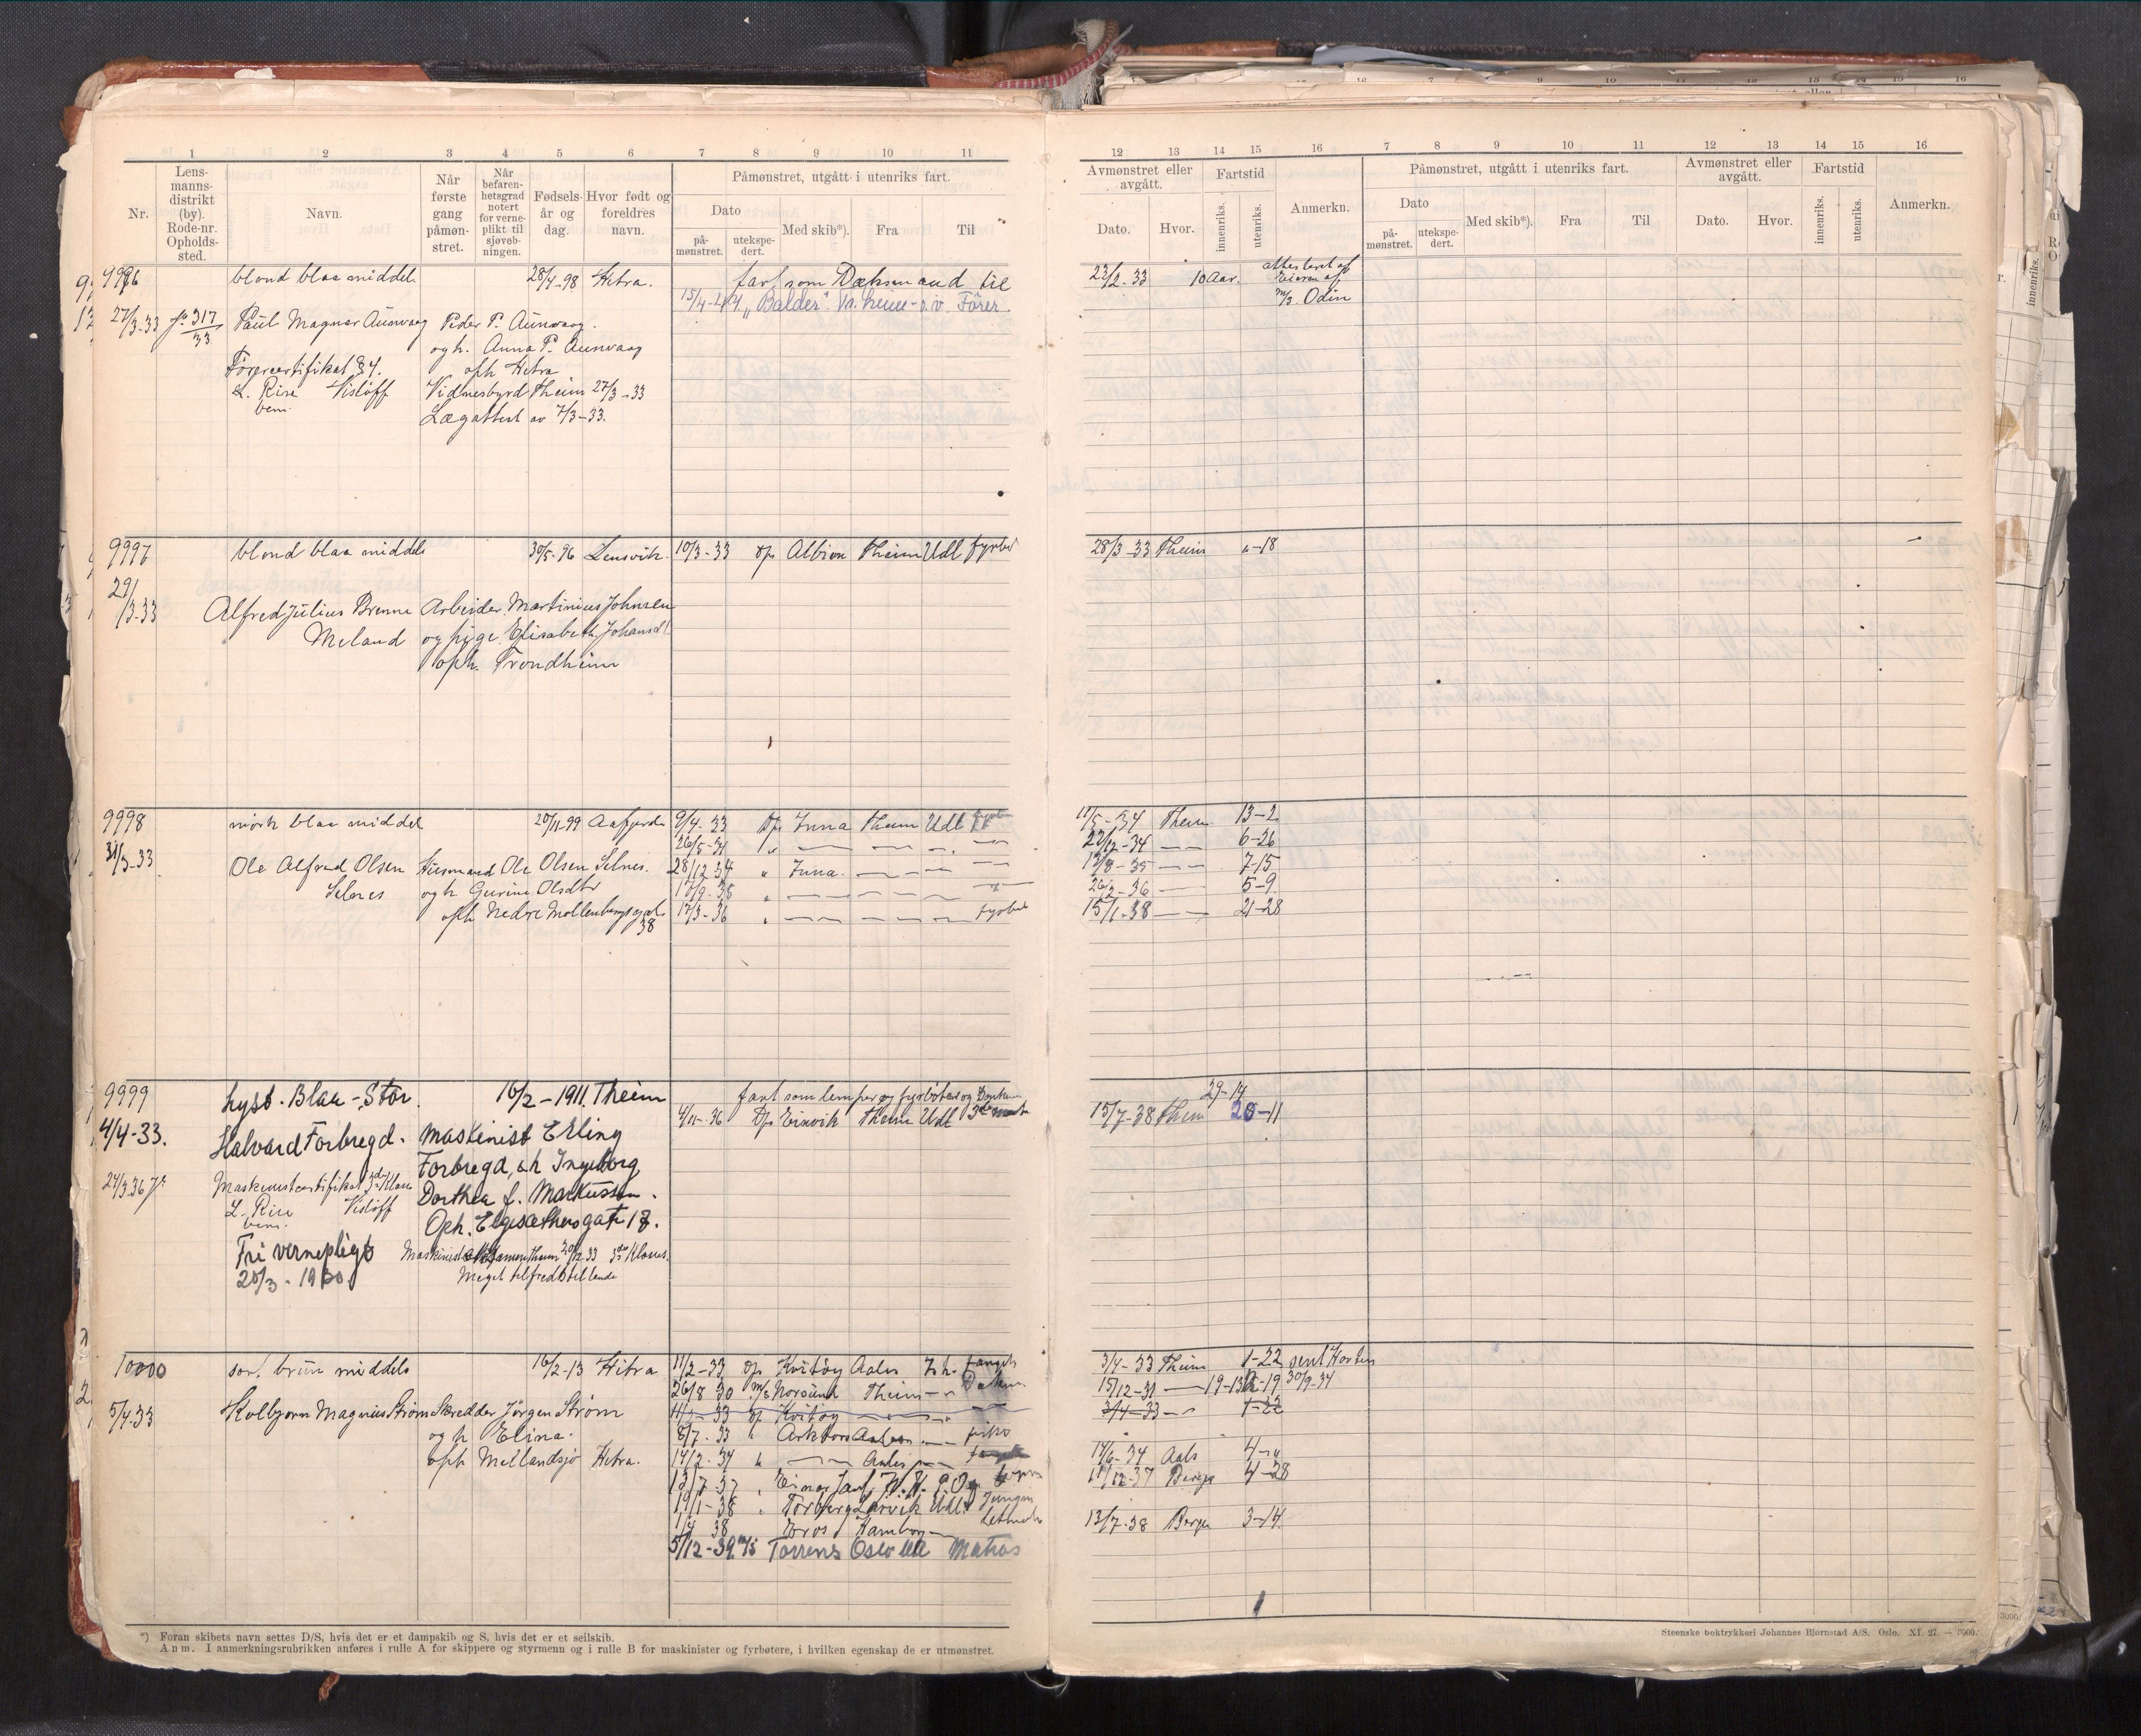 1 2 3 4 5 6 7 8 9 10 11
Nr.
Lens-
manns-
distrikt
(by).
Rode-nr.
Opholds-
sted.
Navn.
Når
første
gang
påmøn-
stret.
Når
befaren-
hetsgrad
notert
for verne-
plikt til
sjøveb-
ningen.
Fødsels-
år og
dag.
Hvor født og
foreldres
navn.
Påmønstret, utgått i utenriks fart.
Dato
på-
mønstret.
utekspe-
dert.
Med skib*).
Fra
Til
12 13 14 15 16 7 8 9 10 11 12 13 14 15 16
Avmønstret eller
avgått.
Dato.
Hvor.
Fartstid
innenriks.
utenriks.
Anmerkn.
Påmønstret, utgått i utenriks fart.
Dato
på-
mønstret.
utekspe-
dert.
Med skib*).
Fra
Til
Avmønstret eller
avgått.
Dato.
Hvor.
Fartstid
innenriks.
utenriks.
Anmerkn.
9996 blond blaa middel 28/4-98 Hitra. fart som Dæksmand til 23/2-33 10 Aar. attesteret af
15/4-44 "Balder" Th.heim - d.v. Fører. Eieren af
M/S Odin
27/3-33 317/33 Paul Magnar Aunvaag Peder P. Aunvaag.
og h. Anna P. Aunvaag
Førercertifikat § 4. oph Hitra
L. Rise Visløff Vidnesbyrd Theim 27/3-33
bem. Lægattest av 7/3-33.
9997 blond blaa middels 30/5-96 Lensvik. 10/3-33 D/S Albion Theim Udl fyrbø 28/3-33 Theim "-18
29/3-33
Alfred Julius Brenne Arbeider Martinius Johnsen
Meland og pige Elisabeth Johansd
oph. Trondheim
9998 mörk blaa middel 20/11-99 Aafjorden 9/4-33 D/S Inna Theim Udl 11/5-34 Theim 13-2
26/5-34 22/12-34 6-26
31/3-33 Ole Alfred Olsen Husmand Ole Olsen Selnes. 28/12 34 " Inna. 13/8-35 7-15
Selnes og h Gurine Olsdtr 17/9-35 26/2-36 5-9
oph Nedre Møllenbergsgate 17/3-36 fyrbøt 15/1-38 21-28
38
9999 Lyst. Blaa - Stor. 16/2-1911. Theim fart som lemper og fyrbøter og Donkem 29-14
4/11-36 D/S Eirvik Theim Udl 15/7-38 Theim 20-11
4/4-33. Halvard Forbregd. Maskinist Erling
Forbregd, o h Ingeborg
24/3.36 Maskinistcertifikat 3die Klasse Dorthea f. Markussen.
L. Rise Visløff Oph. Elgesæthersgate 18.
bem.
Fri vernepligt Maskinisteksamen Theim 20/12 33 3die Klasses.
20/3-1930 Meget tilfredstillende
10000 sort brun middels 16/2-13 Hitra 11/2-33 D/S Kvitøy Aales Ish. fangst 3/4-33 Theim 1-22 sent Horten
26/8 30 M/S Norsund Theim 15/12-31 30/9-34
5/4.33 Kolbjørn Magnus Strøm Skredder Jørgen Strøm 11/2-33 D/S Kvitøy 3/4-33 1-22
og h Elina. 8/7-33 " Aales fisk
oph Mellandsjø Hitra. 14/2-34 " Aales 14/6-34 Aals
13/7-37 " Einar Jarl 11/12-37 Bergn 4-28
19/1-38 " Torberg Larvik Udl Jungm
1/4 38 Eros Hamborg 13/7-38 Bergn 3-14
5/12-39 M/S Torrens Oslo Utl Matros
*) Foran skibets navn settes D/S, hvis det er et dampskib og S, hvis det er et seilskib.
Anm. I anmerkningsrubrikken anføres i rulle A for skippere og styrmenn og i rulle B for maskinister og fyrbøtere, i hvilken egenskap de er utmønstret.
Steenske boktrykkeri Johannes Bjørnstad A/S. Oslo. XI. 27. — 3000.